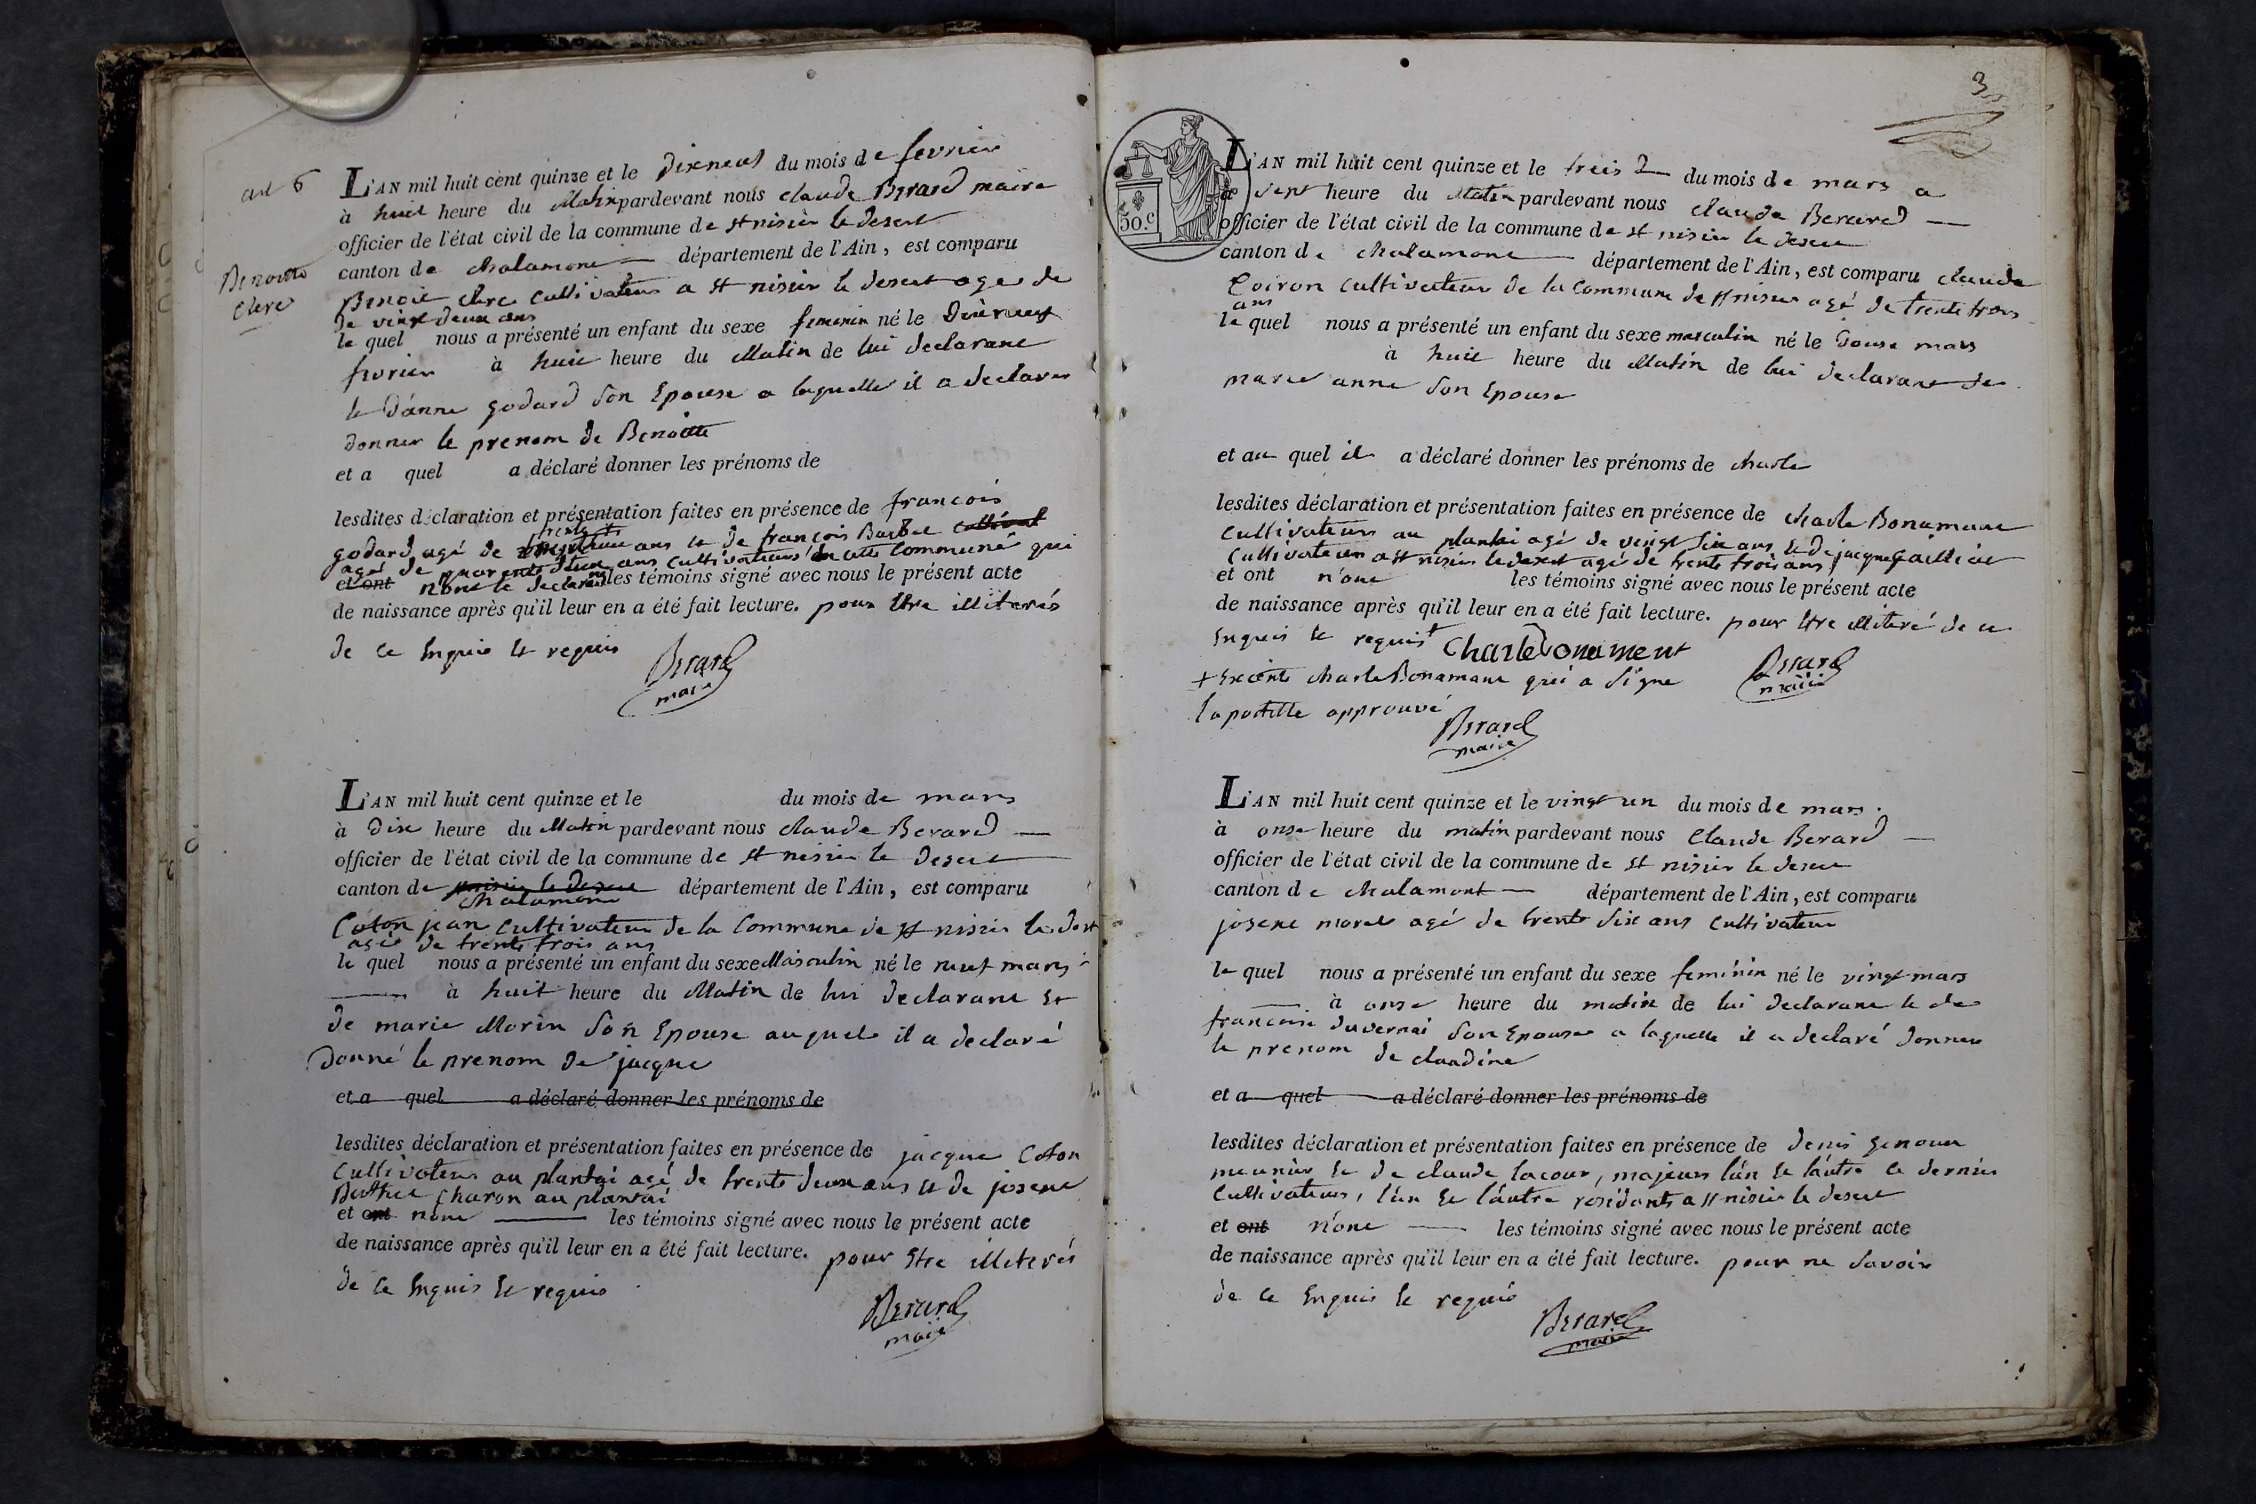 art 6
Benoitte
Clerc
L'AN mil huit cent quinze et le Dixneuf du mois de fevrier
à huit heure du Matin pardevant nous Claude Berard maire
officier de l'état civil de la commune de st nisier le Desert
canton de Chalamont département de l'Ain, est comparu
Benoit Clerc Cultivateur a st nisier le desert age de
de vingt deux ans
le quel nous a présenté un enfant du sexe feminin né le Dixneuf
fevrier à huit heure du Matin de lui declarant
et D'anne godard Son Epouse a laquelle il a declarer
donner le prenom de Benoitte
et a quel a déclaré donner les prénoms de
lesdites déclaration et présentation faites en présence de francois
trente
godard agé de ans et de francois Barbet
agé de quarente deux ans cultivateurs en cette Commune qui
et ont n'ont les témoins signé avec nous le présent acte
de naissance après qu'il leur en a été fait lecture. pour Etre illiterés
de ce Enquis et requis
Berard
maire
L'AN mil huit cent quinze et le du mois de mars
à dix heure du Matin pardevant nous Claude Berard
officier de l'état civil de la commune de st nisier le Desert
canton de st nisier le Desert département de l'Ain, est comparu
Chalamont
Coton jean Cultivateur de la Commune de st nisier le
agé de trente trois ans
le quel nous a présenté un enfant du sexe Masculin né le neuf mars
à huit heure du Matin de lui declarant Et
de marie Morin Son Epouse auquel il a declaré
Donné le prenom de jacque
et a quel a déclaré donner les prénoms de
lesdites déclaration et présentation faites en présence de jacque Coton
Cultivateur au plantai agé de trente deux ans et de josept
Charon au plantai
et ont n'ont les témoins signé avec nous le présent acte
de naissance après qu'il leur en a été fait lecture. pour Etre illiterés
de ce Enquis Et requis
Berard
maire
3
50.c
L'AN mil huit cent quinze et le treis du mois de mars a
à sept heure du Matin pardevant nous Claude Berard
officier de l'état civil de la commune de st nisier le desert
canton de Chalamont département de l'Ain, est comparu Claude
Coiron Cultivateur de la Commune de st nisier agé de trente trois
ans
le quel nous a présenté un enfant du sexe masculin né le Douse mars
à huit heure du Matin de lui declarant de
marie anne Son Epouse
et au quel il a déclaré donner les prénoms de charle
lesdites déclaration et présentation faites en présence de Charle Bonamant
Cultivateur au plantai agé de vingt Six ans et de jacque
Cultivateur a st nisier le desert agé de trente trois ans
et ont n'ont les témoins signé avec nous le présent acte
de naissance après qu'il leur en a été fait lecture. pour Etre illiteré de ce
Enquis et requis + Charle Bonament
Berard
maire
+ Excepté Charle Bonamant qui a Signe
lapostille approuvé
Berard
maire
L'AN mil huit cent quinze et le vingt un du mois de mars.
à onze heure du matin pardevant nous Claude Berard
officier de l'état civil de la commune de st nisier le desert
canton de Chalamont département de l'Ain, est comparu
josept morel agé de trente Six ans Cultivateur
le quel nous a présenté un enfant du sexe feminin né le vingt mars
à onze heure du matin de lui declarant et de
francoise duvernai Son Epouse a laquelle il a declaré Donner
le prenom de claudine
et a quel a déclaré donner les prénoms de
lesdites déclaration et présentation faites en présence de denis
meunier Et de claude lacour, majeurs l'un Et l'autre ce dernier
Cultivateur, l'un Et l'autre residants a st nisier le desert
et ont n'ont les témoins signé avec nous le présent acte
de naissance après qu'il leur en a été fait lecture. pour ne Savoir
de ce Enquis Et requis
Berard
maire